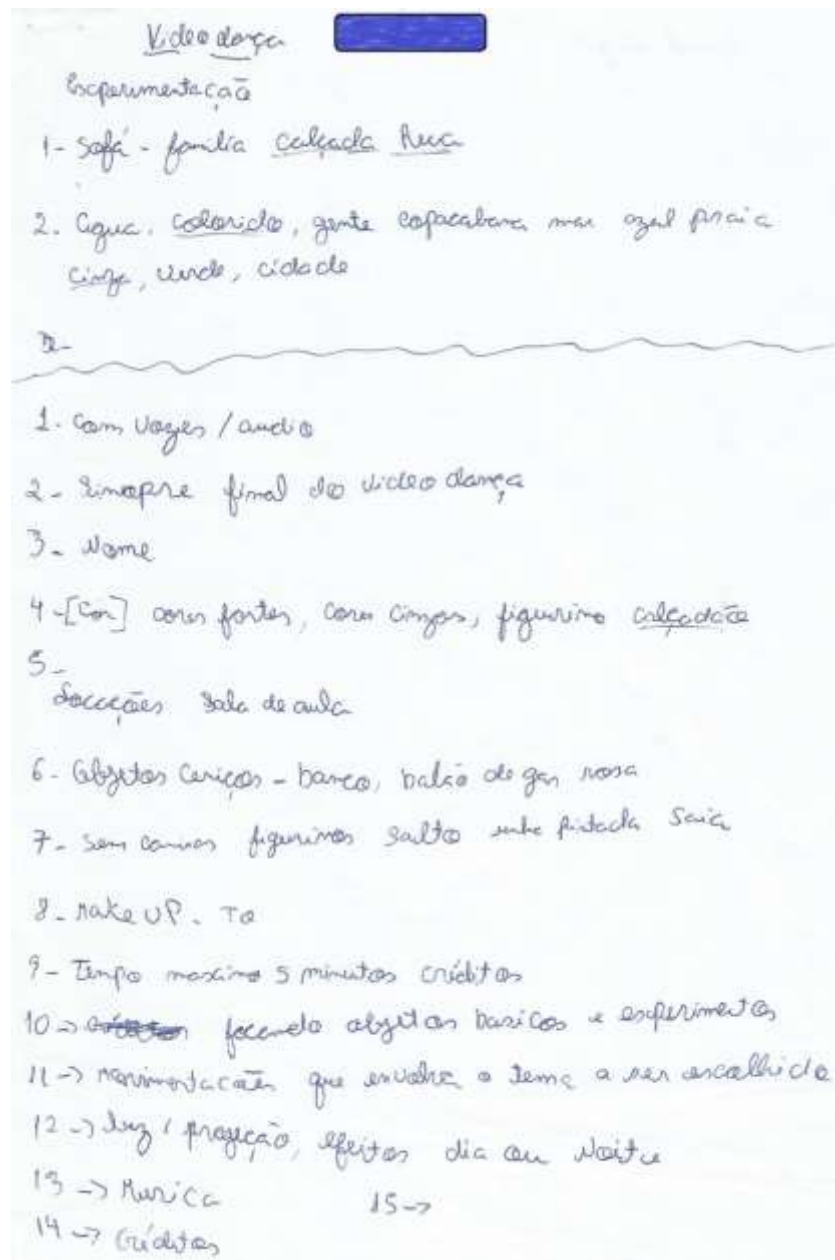 Video dança
Experimentação
1- Sofá - família calçada Rua
2. Agua, colorido, gente copacabana mar azul praia
cinza, verde, cidade
1- Com vozes / audio
2- Sinopse final do video dança
3- Nome
4-[Cor] cores fortes, cores cinzas, figurino calçadão
5-
Locações Sala de aula
6- Objetos Cenicos - banco, balão de gas rosa
7- Sem figurinos Salto pintada Saia
8- Make UP. To
9- Tempo maximo 5 minutos créditos
10 -> focando objetos basicos e experimentos
11 -> movimentações que envolva o tema a ser escolhido
12 -> luz / projeção, efeitos dia ou Noite
13 -> Musica 15->
14 -> Créditos